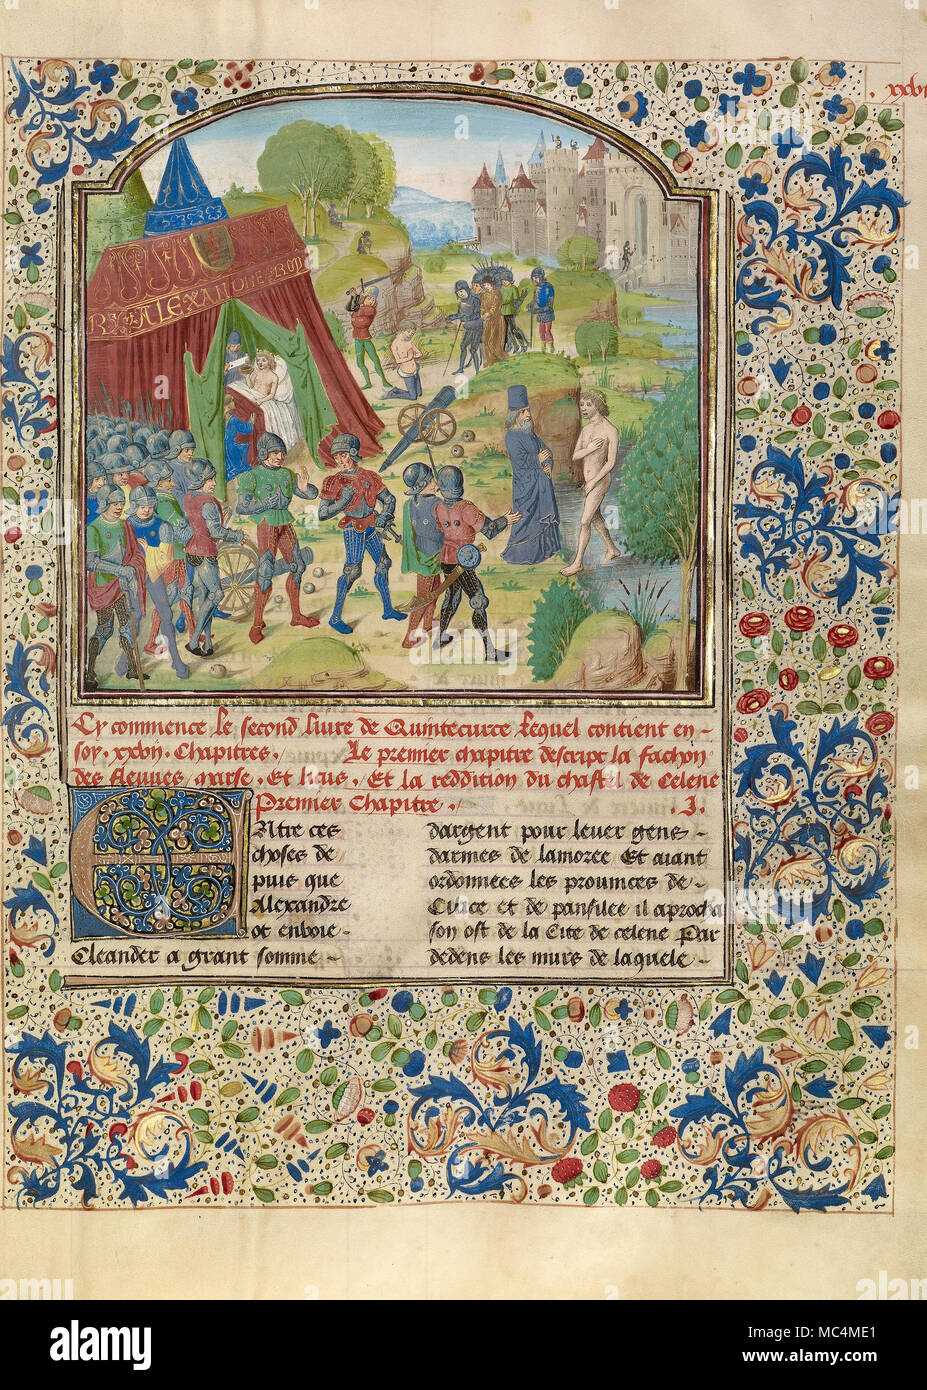 . xxvi
ALEXANDRE ROY
Cy commence le second livre de Quintecurce lequel contient en –
soy .xxvii. Chapitres . Le premier chapitre descript la fachon
des fleuves marse . Et licus . Et la reddition du chastel de Celene
Premier Chapitre . .I.
Entre ces
choses de
puis que
Alexandre
ot enuoie –
Cleander a grant somme –
dargent pour leuer gens –
darmes de lamoree Et aiant
ordonnees les prouinces de –
Cilice et de pansilee il aprocha
son ost de la Cite de celene Par
dedens les murs de laquele –
alamy stock photo
MC4ME1
www.alamy.com